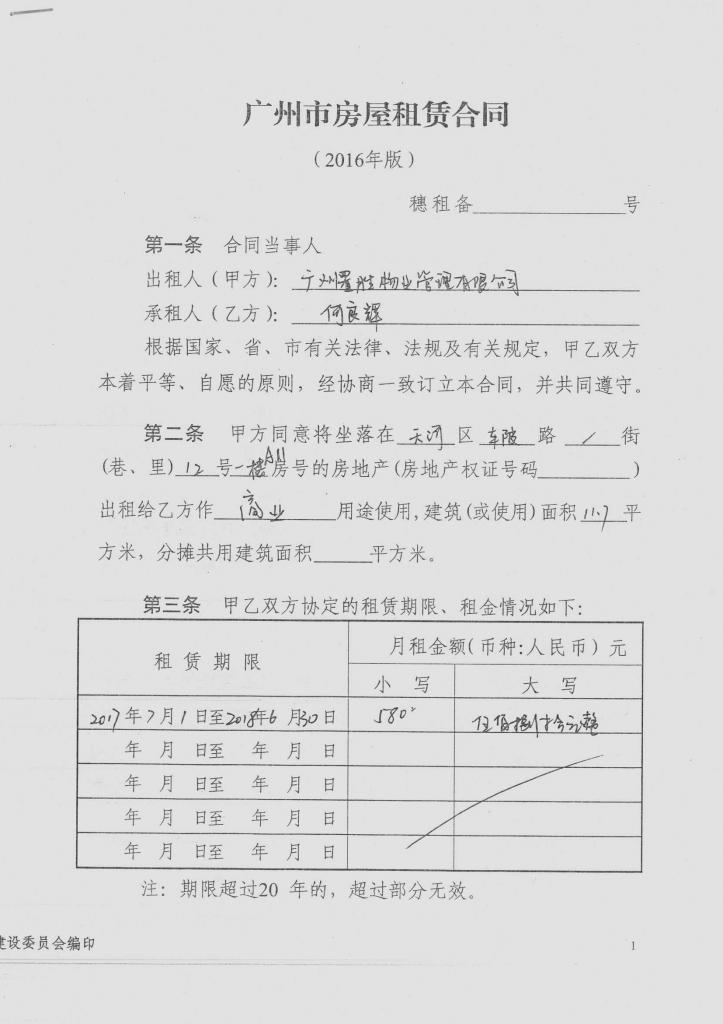 广州市房屋租赁合同
（2016年版）
穗租备____________号
第一条 合同当事人
出租人（甲方）：广州置胜物业管理有限公司
承租人（乙方）：何良辉
根据国家、省、市有关法律、法规及有关规定，甲乙双方
本着平等、自愿的原则，经协商一致订立本合同，并共同遵守。
第二条 甲方同意将坐落在 天河 区 车陂 路 / 街
(巷、里) 12 号一楼A11房号的房地产(房地产权证号码________)
出租给乙方作 商业 用途使用,建筑(或使用)面积 11.7 平
方米，分摊共用建筑面积_____平方米。
第三条 甲乙双方协定的租赁期限、租金情况如下：
租赁期限 月租金额(币种:人民币)元
小写 大写
2017年7月1日至2018年6月30日 580 伍佰捌拾元整
年 月 日至 年 月 日
年 月 日至 年 月 日
年 月 日至 年 月 日
年 月 日至 年 月 日
注：期限超过20 年的，超过部分无效。
建设委员会编印 1